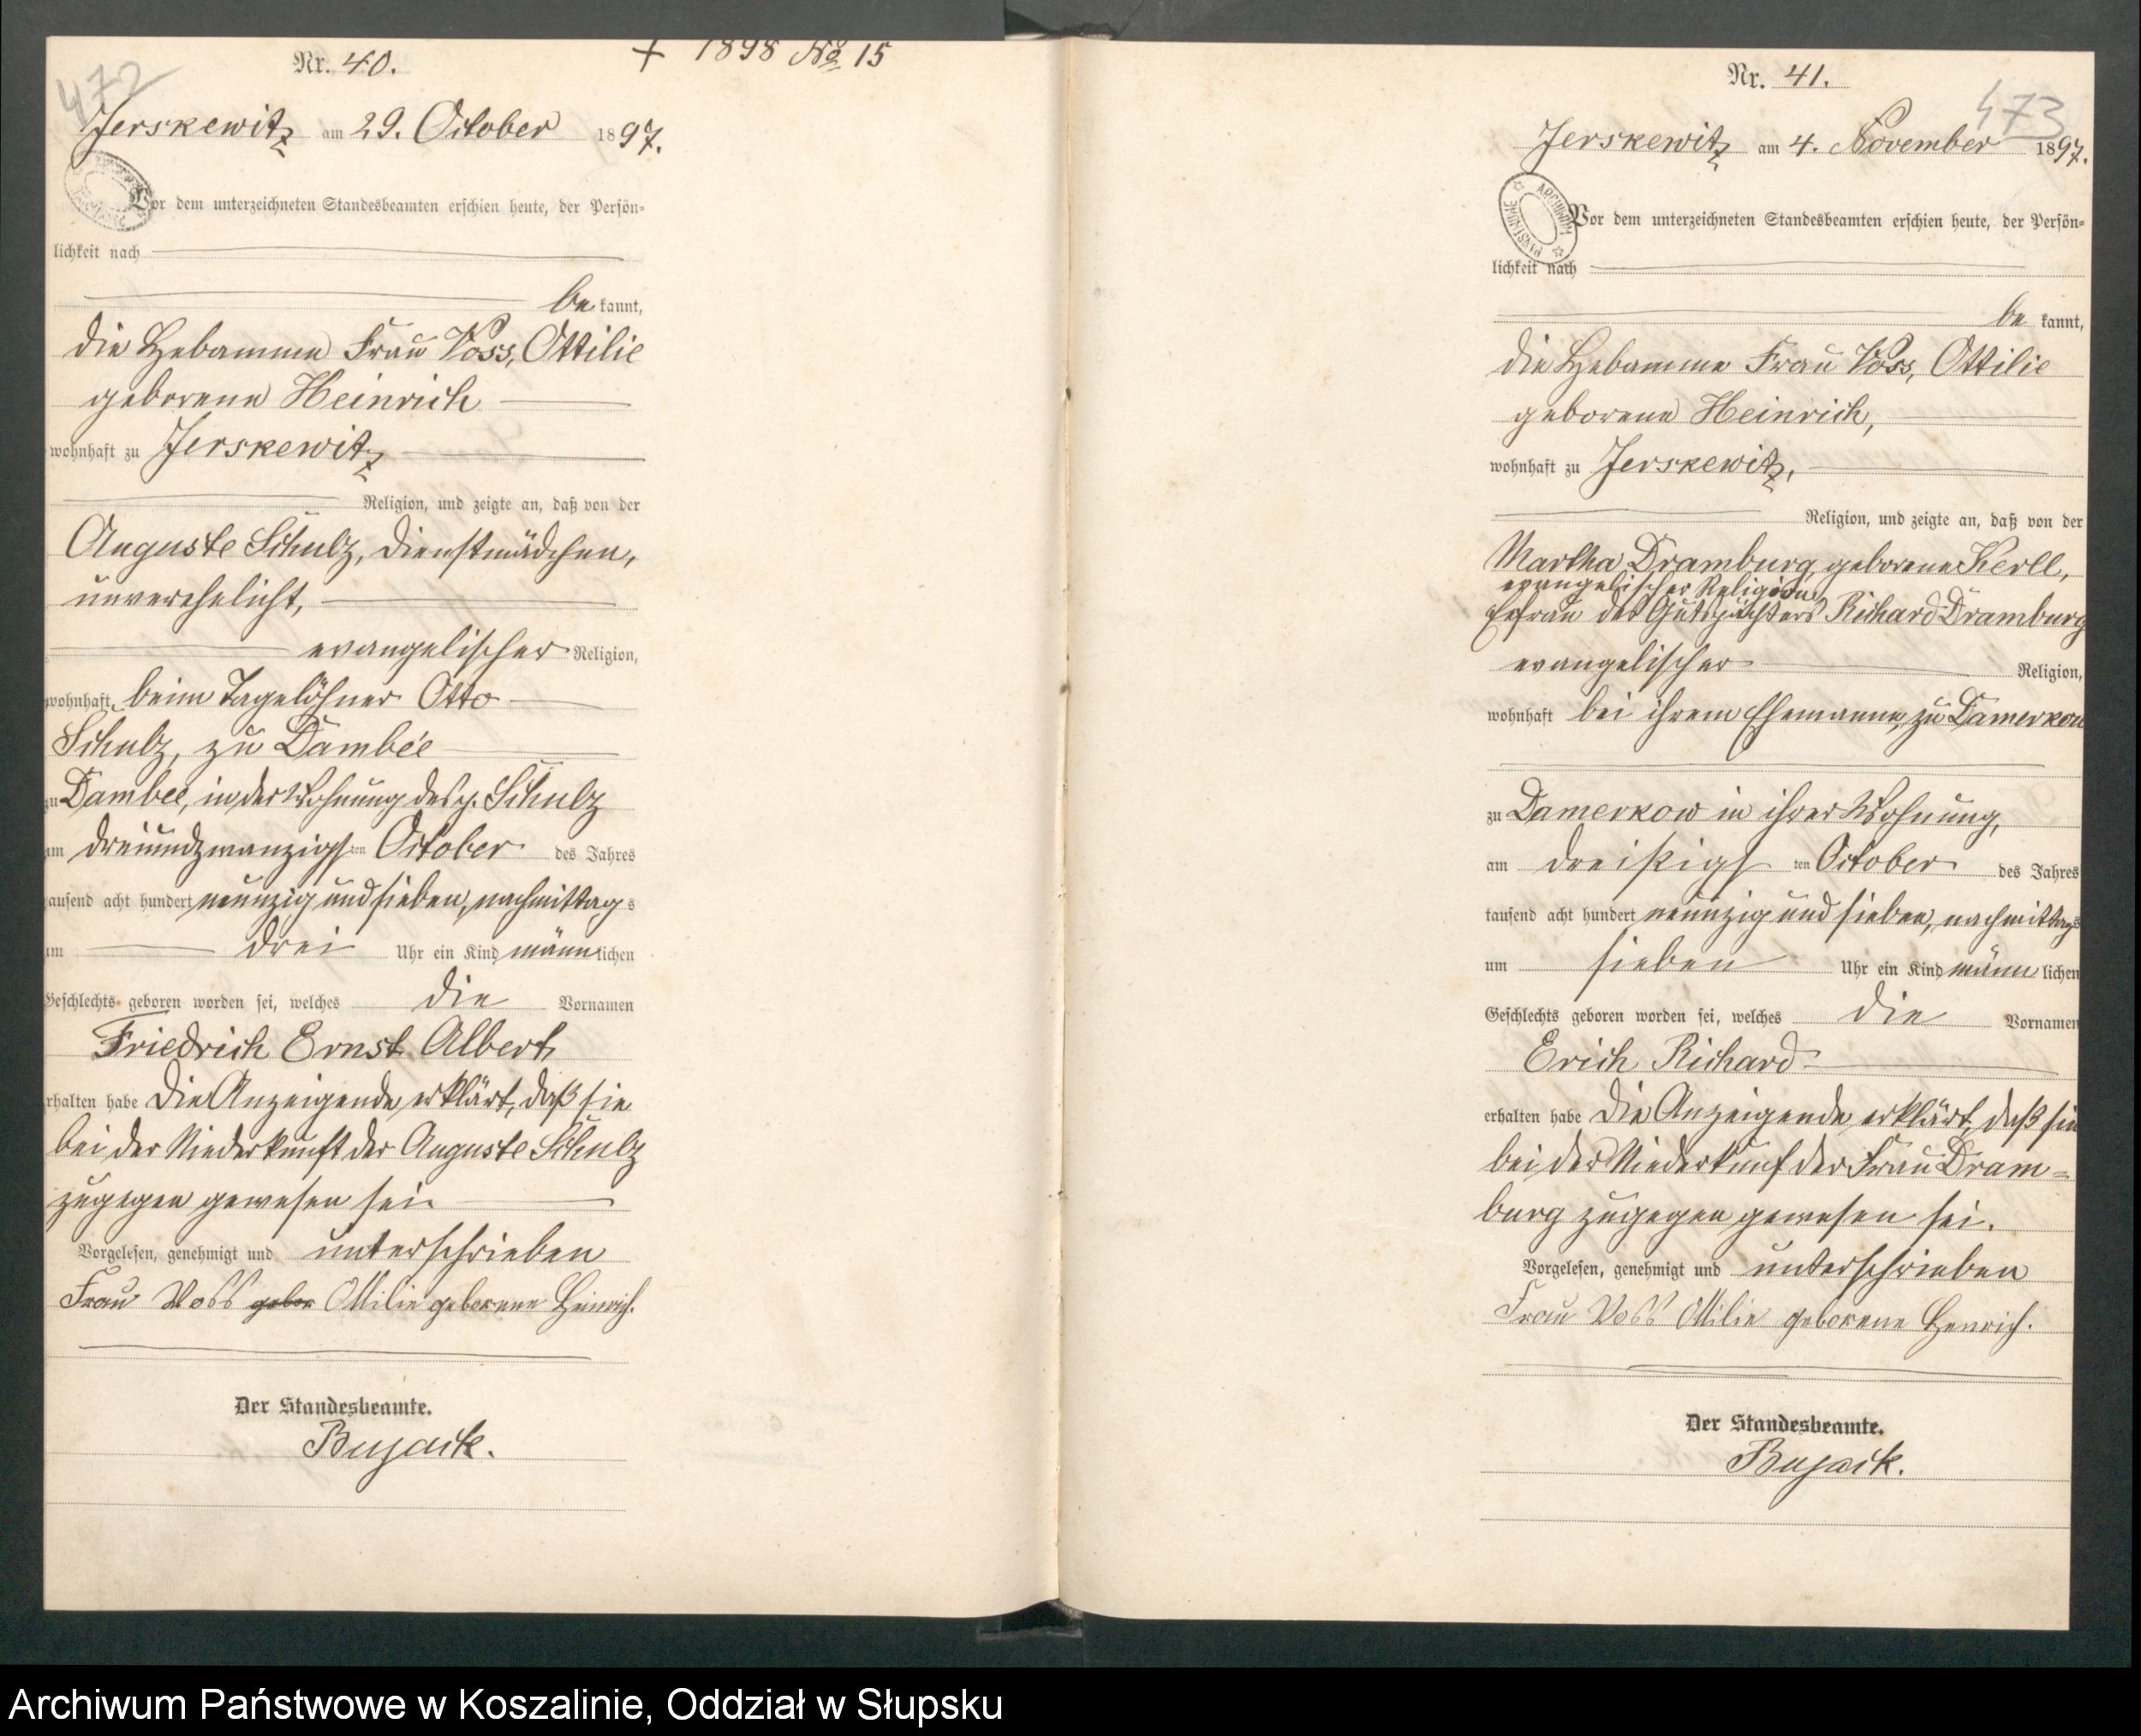 472
Nr. 40.
+ 1898 No 15
Jerskewitz am 29. October 1897.
Vor dem unterzeichneten Standesbeamten erschien heute, der Persön-
lichkeit nach
be kannt,
die Hebamme Frau Voss, Ottilie
geborene Heinrich
wohnhaft zu Jerskewitz
Religion, und zeigte an, daß von der
Auguste Schulz, Dienstmädchen,
unverehelicht,
evangelischer Religion,
wohnhaft beim Tagelöhner Otto
Schulz, zu Dambée
zu Dambee, in der Wohnung des p. Schulz
am dreiundzwanzigsten October des Jahres
tausend acht hundert neunzig und sieben, nachmittags
um drei Uhr ein Kind männlichen
Geschlechts geboren worden sei, welches die Vornamen
Friedrich Ernst Albert
erhalten habe Die Anzeigende erklärt, daß sie
bei der Niederkunft der Auguste Schulz
zugegen gewesen sei.
Vorgelesen, genehmigt und unterschrieben
Frau Voss gebor Ottilie geborene Heinrich.
Der Standesbeamte.
Bujack.
473
Nr. 41.
Jerskewitz am 4. November 1897.
ARCHIWUM PAŃSTWOWE
Vor dem unterzeichneten Standesbeamten erschien heute, der Persön-
lichkeit nach
be kannt,
die Hebamme Frau Voss, Ottilie
geborene Heinrich,
wohnhaft zu Jerskewitz,
Religion, und zeigte an, daß von der
Martha Dramburg, geborene Kerll,
evangelischer Religion,
Ehefrau des Gutspächters Richard Dramburg
evangelischer Religion,
wohnhaft bei ihrem Ehemanne, zu Damerkow
zu Damerkow in ihrer Wohnung,
am dreißigsten October des Jahres
tausend acht hundert neunzig und sieben, nachmittags
um sieben Uhr ein Kind männlichen
Geschlechts geboren worden sei, welches die Vornamen
Erich Richard
erhalten habe Die Anzeigende erklärt, daß sie
bei der Niederkunf der Frau Dram=
burg zugegen gewesen sei.
Vorgelesen, genehmigt und unterschrieben
Frau Voss Ottilie geborene Henrich.
Der Standesbeamte.
Bujack.
Archiwum Państwowe w Koszalinie, Oddział w Słupsku